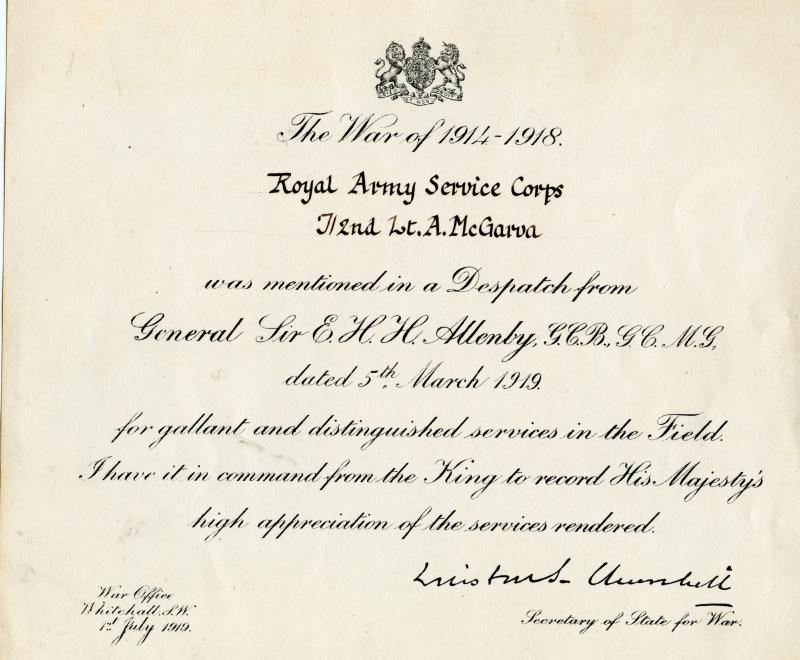 The War of 1914-1918.
Royal Army Service Corps
T/2nd Lt. A. McGarva
was mentioned in a Despatch from
General Sir E. H. H. Allenby, G.C.B., G.C.M.G,
dated 5th March 1919.
for gallant and distinguished services in the Field.
I have it in command from the King to record His Majesty's
high appreciation of the services rendered.
Winston S Churchill
Secretary of State for War.
War Office
Whitehall. S.W.
1st July 1919.